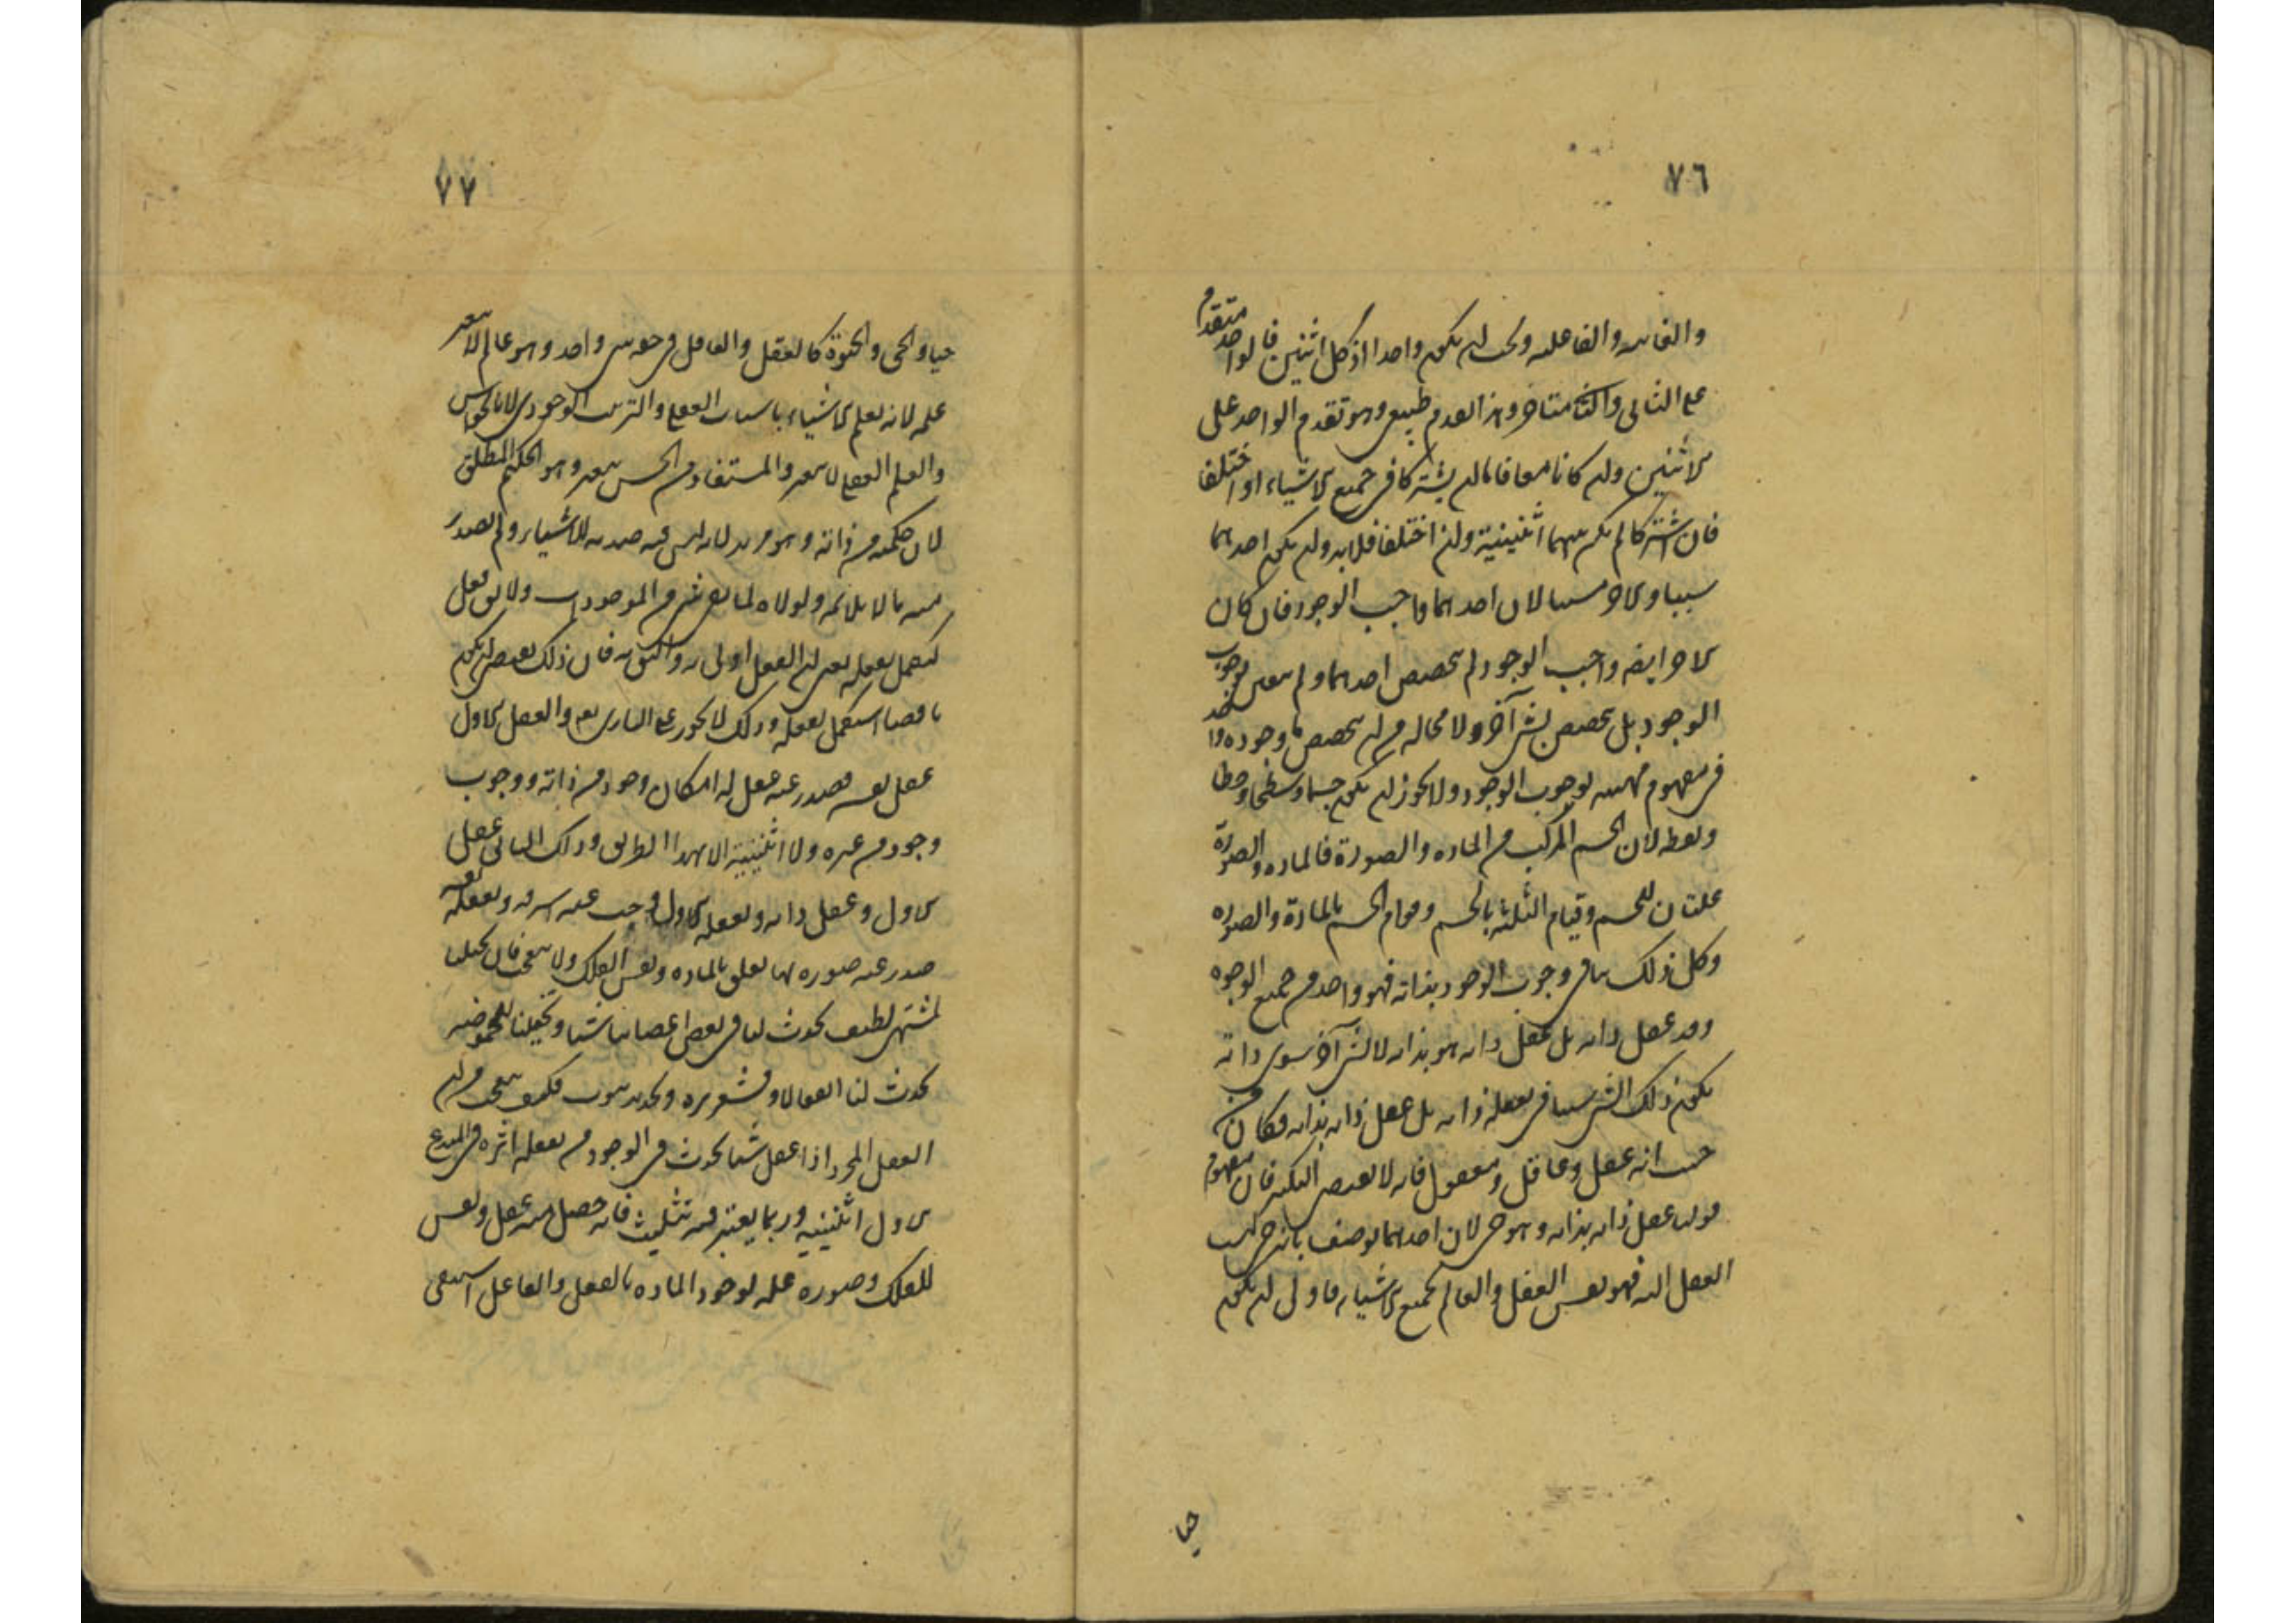 ٧٦
والغائية والفاعلية ويجب ان يكون واحدا اذ كل اثنين فالواحد متقدم
على الثاني والثاني متاخر وهذا التقدم طبيعي وهو تقدم الواحد على
الاثنين وان كانا معا فاما ان يشتركا في جميع الاشياء او اختلفا
فان اشتركا لم يكن بينهما اثنينية وان اختلفا فلابد وان يكون احدهما
سببا والاخر مسببا لان احدهما واجب الوجود فان كان
الاخر ايضا واجب الوجود لم يتخصص احدهما ولم يتعين بوجوب
الوجود بل تخصص بشئ آخر ولا محالة من ان يتخصص وجوده
في مفهوم مهيته بوجوب الوجود ولا يجوز ان يكون جسما وسطحا وخطا
ونقطة لان الجسم المركب من المادة والصورة فالمادة والصورة
علتان للجسم وقيام الثلثة بالجسم وقوام الجسم بالمادة والصورة
وكل ذلك ينافي وجوب الوجود بذاته فهو واحد من جميع الوجوه
وقد عقل ذاته بل عقل ذاته هو بذاته لا لشئ آخر سوى ذاته
يكون ذلك الشئ سببا في تعقله ذاته بل عقل ذاته بذاته فكان من
حيث انه عقل وعاقل ومعقول فانه لا يقتضي التكثر فان مفهوم
قولنا عقل ذاته بذاته وهو حي لان احدهما لو صنف بانه حي لنسب
العقل اليه فهو نفس العقل والعالم بجميع الاشياء فاولى ان يكون
حيا
٧٧
حيا والحي والحيوة كالعقل والعاقل في حقه شئ واحد وهو عالم لا يتغير
علمه لانه يعلم الاشياء باسباب العقلي والترتيب الوجودي لا بالحواس
والعلم العقلي لا يتغير والمستفاد من الحس يتغير وهو الحكيم المطلق
لان حكمته من ذاته وهو مريد لانه ليس فيه ضدية للاشياء ولم يصدر
منه ما لا يلائمه ولولاه لما بقي شئ من الموجودات ولا يفعل
ليكمل بفعله يعني ان الفعل اولى به واليق به فان ذلك يقتضي ان يكون
ناقصا استكمل بفعله وذلك لا يجوز على الباري تعالى والعقل الاول
عقل نفسه فصدر عنه عقل له امكان وجود من ذاته ووجوب
وجود من غيره ولا اثنينية الا بهذا الطريق وذلك الثاني عقل
الاول وعقل ذاته وبعقله الاول وجب عنه اشرف وبعقله نفسه
صدر عنه صورة لها تعلق بالمادة ونفس الفلك ولا يتعجب فان تخيلنا
لمشتهى لطيف يحدث لنا في بعض اعضائنا شيئا وتخيلنا للحموضة
يحدث لنا انفعالا وقشعريرة فكيف يتعجب من ان
العقل المجرد اذا عقل شيئا يحدث في الوجود من تعقله اثره في المبدع
الاول اثنينية وربما يعتبر فيه تثليث فانه حصل منه عقل ونفس
للفلك وصورة علة لوجود المادة بالفعل والفاعل